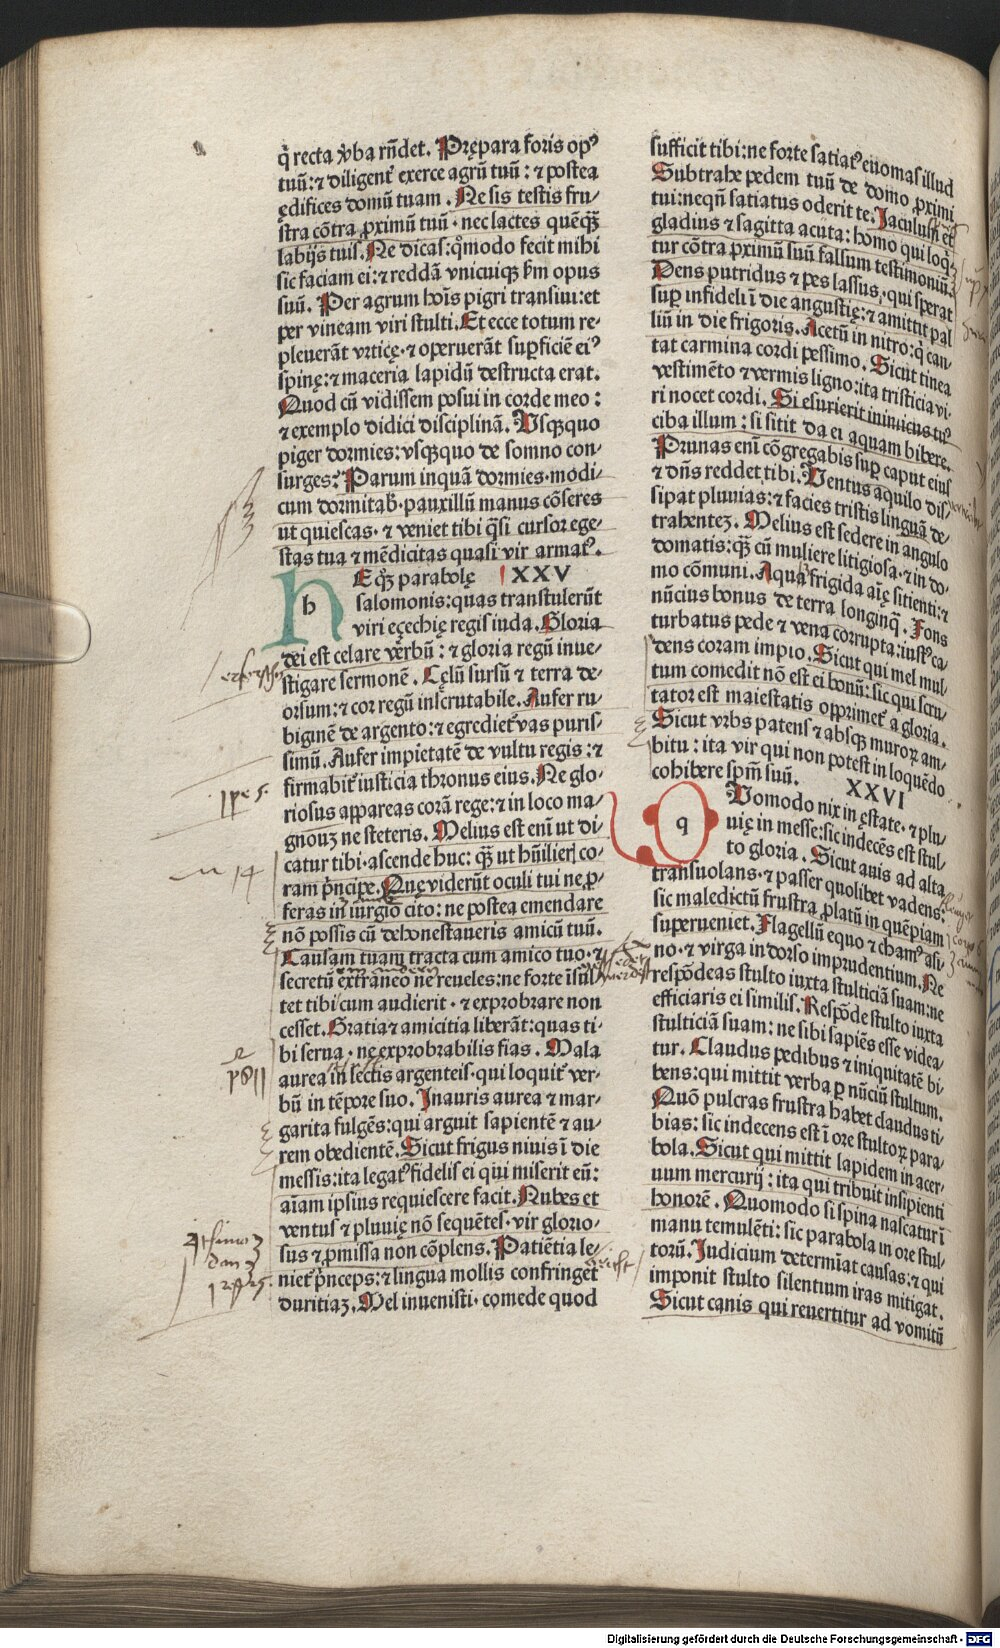 q̇ recta v̇ba rn̄det. Prępara foris opꝰ
tuū: ⁊ diligent᷑ exerce agrū tuū: ⁊ postea
ędifices domū tuam. Ne sis testis fru-
stra cōtra ꝓximū tuū· nec lactes quēq̄ꝫ
labijs tuis. Ne dicas: q̊modo fecit mihi
sic faciam ei: ⁊ reddā vnicuiqꝫ ẜm opus
suū. Per agrum hoīs pigri transiui: et
per vineam viri stulti. Et ecce totum re-
pleuerāt vrticę· ⁊ operuerāt suꝑficiē eiꝰ
spinę: ⁊ maceria lapidū destructa erat.
Quod cū vidissem posui in corde meo:
⁊ exemplo didici disciplinā. Vsqꝫquo
piger dormies: vsqꝫquo de somno con-
surges? Parum inquā dormies· modi-
cum dormitab̕· pauxillū manus cōseres
ut quiescas· ⁊ veniet tibi q̄si cursor ege-
stas tua ⁊ mēdicitas quasi vir armatꝰ.
h Eq̄ꝫ parabolę XXV
salomonis: quas transtulerūt
viri eęechię regis iuda. Gloria
dei est celare verbū: ⁊ gloria regū inue-
stigare sermonē. Cęlū sursū ⁊ terra de-
orsum: ⁊ cor regū inscrutabile. Aufer ru-
biginē de argento: ⁊ egrediet᷑ vas puris-
simū. Aufer impietatē de vultu regis: ⁊
firmabit᷑ iusticia thronus eius. Ne glo-
riosus appareas corā rege: ⁊ in loco ma-
gnoꝝ ne steteris. Melius est enī ut di-
catur tibi· ascende huc: q̄ꝫ ut hūilieꝭ co-
ram pn̄cipe. Quę viderūt oculi tui ne ꝓ-
feras in iurgio cito: ne postea emendare
nō possis cū dehonestaueris amicū tuū.
Causam tuam tracta cum amico tuo· ⁊
secretū extraneo ne reueles: ne forte īsul-
tet tibi cum audierit· ⁊ exprobrare non
cesset. Gratia ⁊ amicitia liberāt: quas ti-
bi serua· ne exprobrabilis fias. Mala
aurea in lectis argenteis· qui loquit᷑ ver-
bū in tēpore suo. Inauris aurea ⁊ mar-
garita fulgēs: qui arguit sapientē ⁊ au-
rem obedientē. Sicut frigus niuis ī die
messis: ita legatꝰ fidelis ei qui miserit eū:
aīam ipsius requiescere facit. Nubes et
ventus ⁊ pluuię nō sequētes· vir glorio-
sus ⁊ ꝓmissa non cōplens. Patiētia le-
niet᷑ pn̄ceps: ⁊ lingua mollis confringet
duritiaꝫ. Mel inuenisti· comede quod
sufficit tibi: ne forte satiatꝰ euomas illud
Subtrahe pedem tuū de domo ꝓximi
tui: neqn̄ satiatus oderit te. Iaculum et
gladius ⁊ sagitta acuta: homo qui loq̄-
tur cōtra ꝓximū suū falsum testimoniū.
Dens putridus ⁊ pes lassus, qui sperat
suꝑ infideli ī die angustię: ⁊ amittit pal
liū in die frigoris. Acetū in nitro: q̇ can-
tat carmina cordi pessimo. Sicut tinea
vestimēto ⁊ vermis ligno: ita tristicia vi-
ri nocet cordi. Si esurierit inimicus tuꝰ
ciba illum: si sitit da ei aquam bibere.
Prunas enī cōgregabis suꝑ caput eius
⁊ dn̄s reddet tibi. Ventus aquilo dis
sipat pluuias: ⁊ facies tristis linguā de-
trahenteꝫ. Melius est sedere in angulo
domatis: q̄ꝫ cū muliere litigiosa· ⁊ in do-
mo cōmuni. Aqua frigida aīę sitienti: ⁊
nūcius bonus de terra longinq̄. Fons
turbatus pede ⁊ vena corrupta: iustꝰ ca-
dens coram impio. Sicut qui mel mul-
tum comedit nō est ei bonū: sic qui scru-
tator est maiestatis opprimet᷑ a gloria.
Sicut vrbs patens ⁊ absqꝫ muroꝝ am-
bitu: ita vir qui non potest in loquēdo
cohibere spm̄ suū. XXVI
q Vomodo nix in ęstate· ⁊ plu-
uię in messe: sic indecēs est stul-
to gloria. Sicut auis ad alta
transuolans· ⁊ passer quolibet vadens:
sic maledictū frustra ꝓlatū in quēpiam
superueniet. Flagellū equo ⁊ chamꝰ asi-
no· ⁊ virga in dorso imprudentium. Ne
respōdeas stulto iuxta stulticiā suam: ne
efficiaris ei similis. Respōde stulto iuxta
stulticiā suam: ne sibi sapiēs esse videa-
tur. Claudus pedibus ⁊ iniquitatē bi-
bens: qui mittit verba ꝑ nūciū stultum.
Quō pulcras frustra habet claudus ti-
bias: sic indecens est ī ore stultoꝝ para-
bola. Sicut qui mittit lapidem in acer-
uum mercurij: ita qui tribuit insipienti
honorē. Quomodo si spina nascatur ī
manu temulēti: sic parabola in ore stul-
torū. Iudicium determīat causas: ⁊ qui
imponit stulto silentium iras mitigat.
Sicut canis qui reuertitur ad vomitū
Digitalisierung gefördert durch die Deutsche Forschungsgemeinschaft - DFG